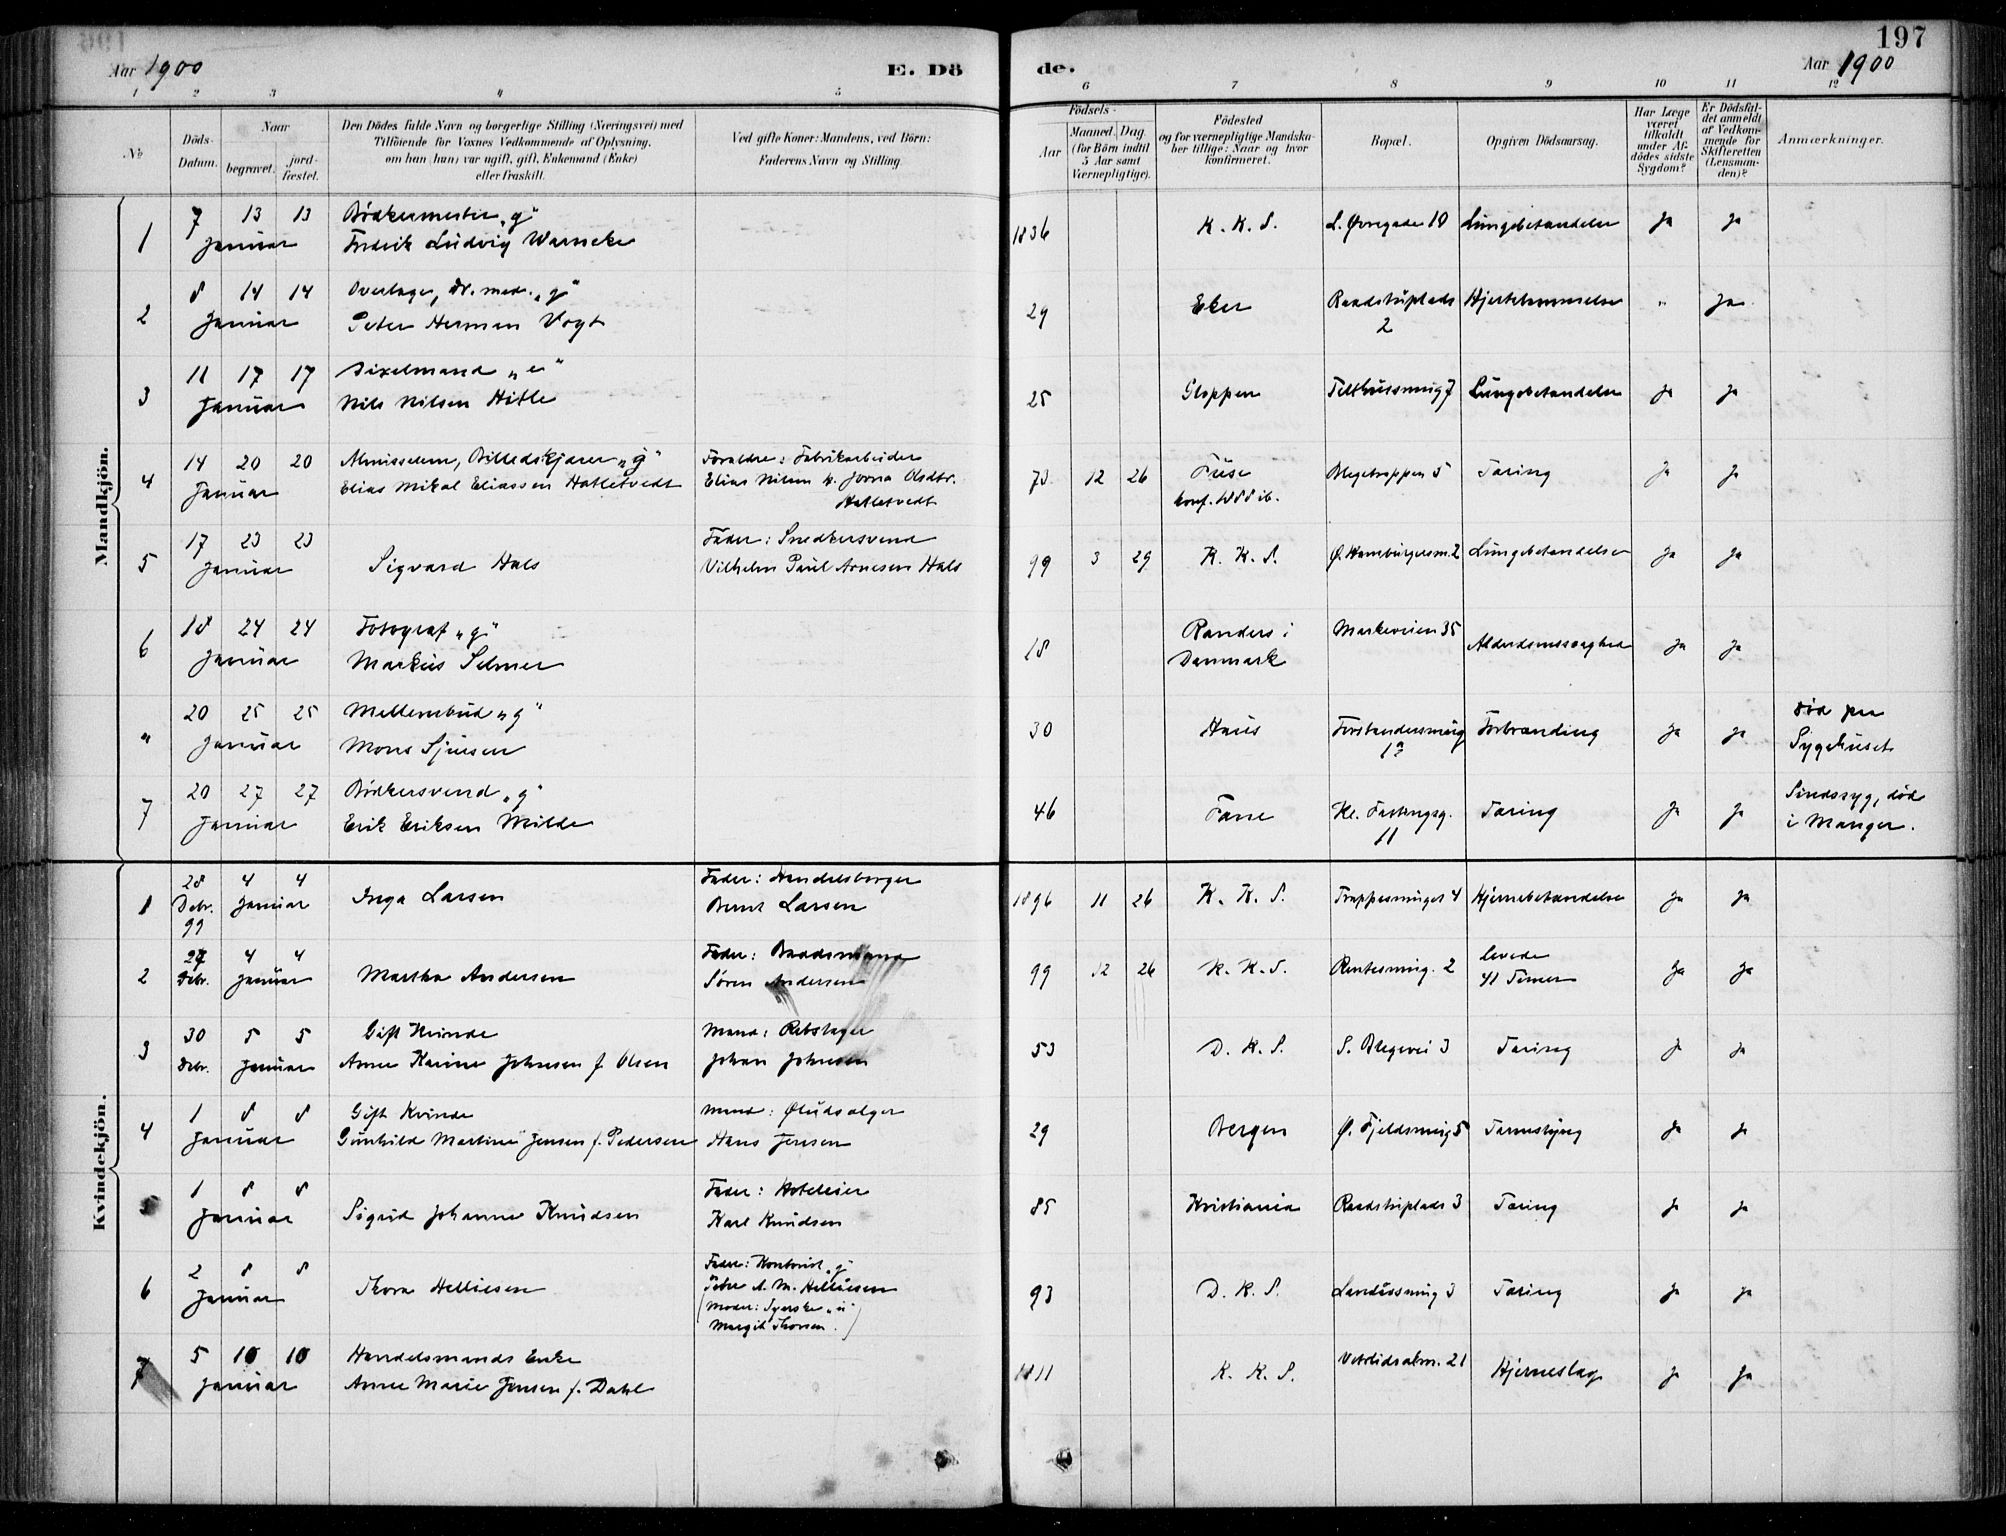 197
Aar 1900
E. Dö
de.
Aar 1900
1 2 3 4 5 6 7 8 9 10 11 12
No
Döds-
Datum.
Naar
begravet.
jord-
fæstet.
Den Dödes fulde Navn og borgerlige Stilling (Næringsvei) med
Tilföiende for Voxnes Vedkommende af Oplysning,
om han (hun) var ugift, gift, Enkemand (Enke)
eller fraskilt.
Ved gifte Koner: Mandens, ved Börn:
Faderens Navn og Stilling.
Födsels-
Aar
Maaned. Dag.
(for Börn indtil
5 Aar samt
Værnepligtige).
Födested
og for værnepligtige Mandska-
ber tillige: Naar og hvor
konfirmeret.
Bopæl.
Opgiven Dödsaarsag.
Har Læge
været
tilkaldt
under Af-
dödes sidste
Sygdom?
Er Dödsfal-
det anmeldt
af Vedkom-
mende for
Skifteretten
(Lensman-
den)?
Anmærkninger.
Mandkjön.
1 7 13 13 Bödkermester „g“
Januar Fredrik Ludvig Warneke 1836 K. K. S. L. Øvregade 10 Lungebetændelse Ja Ja
2 8 14 14 Overlæge, Dr. med. „g“
Januar Peter Herman Vogt 29 Eker Raadstuplads 2 Hjertelammelse " Ja
3 11 17 17 Sixelmand „e“
Januar Nils Nilsen Hitle 25 Gloppen Telthussmug 7 Lungebetændelse Ja Ja
4 14 20 20 Almisselem, Billedskjærer „g“ Forældre: Fabrikarbeider
Januar Elias Mikal Eliassen Hatletvedt Elias Nilsen Olsdtr.
Hatletvedt 73 12 26 Fuse
konf. 1888 ib. Blegetrappen 5 Tæring Ja Ja
5 17 23 23 Fader: Snedkersvend
Januar Sigvard Hals Vilhelm Paul Arnesen Hals 99 3 29 K. K. S. Ø. Hamburgersm. 2 Lungebetændelse Ja Ja
6 18 24 24 Fotograf „g“
Januar Markus Selmer 18 Randers i
Danmark Markeveien 35 Alderdomssvaghed Ja Ja
" 20 25 25 „g“
Januar Mons Sjursen 30 Haus Forstandersmug Forbrænding Ja Ja Død paa
Sygehuset
7 20 27 27 Bödkersvend „g“
Januar Erik Eriksen Milde 46 Fane Kl. Fastingsg.
11 Tæring Ja Ja Sindssyg, død
i Manger.
Kvindekjön.
1 28 4 4 Fader: Handelsborger
Debr. Januar Inga Larsen Bernt Larsen
99 1896 11 26 K. K. S. Trappesmuget 4 Hjernebetændelse Ja Ja
2 27 4 4 Fader: Baadsmand
Debr. Januar Martha Andersen Søren Andersen 99 12 26 K. K. S. Rentesmug. 2 levede
41 Timer Ja Ja
3 30 5 5 Gift Kvinde Mand: Rebslager
Debr. Januar Anne Karine Johnsen f. Olsen Johan Johnsen 53 D. K. S. S. Blegevei 3 Tæring Ja Ja
4 1 8 8 Gift Kvinde Mand: Øludsælger
Januar Gunhilde Martine Jensen f. Pedersen Hans Jensen 29 Bergen Ø. Fjeldsmug 5 Tarmslyng Ja Ja
5 1 8 8 Fader: Hoteleier
Januar Sigrid Johanne Knudsen Karl Knudsen 85 Kristiania Raadstuplads 3 Tæring Ja Ja
6 2 8 8 Fader: Kontorist „g“
Januar Thora Helliesen Peder A. M. Helliesen
(Moder: Syerske „u“
Margit Thorsen.) 93 D. K. S. Landaassmug 3 Tæring Ja Ja
7 5 10 10 Handelsmands Enke
Januar Anne Marie Jensen f. Dahl 1811 K. K. S. Vetrlidsalm. 21 Hjerneslag Ja Ja